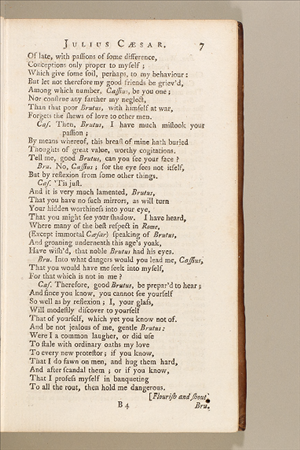 JULIUS CÆSAR. 7
Of late, with paſſions of ſome difference,
Conceptions only proper to myſelf;
Which give ſome ſoil, perhaps, to my behaviour:
But let not therefore my good friends be griev'd,
Among which number, Caſſius, be you one;
Nor conſtrue any farther my neglect,
Than that poor Brutus, with himſelf at war,
Forgets the ſhews of love to other men.
Caſ. Then, Brutus, I have much miſtook your
paſſion;
By means whereof, this breaſt of mine hath buried
Thoughts of great value, worthy cogitations.
Tell me, good Brutus, can you ſee your face?
Bru. No, Caſſius; for the eye ſees not itſelf,
But by reflexion from ſome other things.
Caſ. 'Tis juſt.
And it is very much lamented, Brutus,
That you have no ſuch mirrors, as will turn
Your hidden worthineſs into your eye,
That you might ſee your ſhadow. I have heard,
Where many of the beſt reſpect in Rome,
(Except immortal Cæſar) ſpeaking of Brutus,
And groaning underneath this age's yoak,
Have wiſh'd, that noble Brutus had his eyes.
Bru. Into what dangers would you lead me, Caſſius,
That you would have me ſeek into myſelf,
For that which is not in me?
Caſ. Therefore, good Brutus, be prepar'd to hear;
And ſince you know, you cannot ſee yourſelf
So well as by reflexion; I, your glaſs,
Will modeſtly diſcover to yourſelf
That of yourſelf, which yet you know not of.
And be not jealous of me, gentle Brutus:
Were I a common laugher, or did uſe
To ſtale with ordinary oaths my love
To every new proteſtor; if you know,
That I do fawn on men, and hug them hard,
And after ſcandal them; or if you know,
That I profeſs myſelf in banqueting
To all the rout, then hold me dangerous.
[Flouriſh and ſhout.
B 4 Bru.